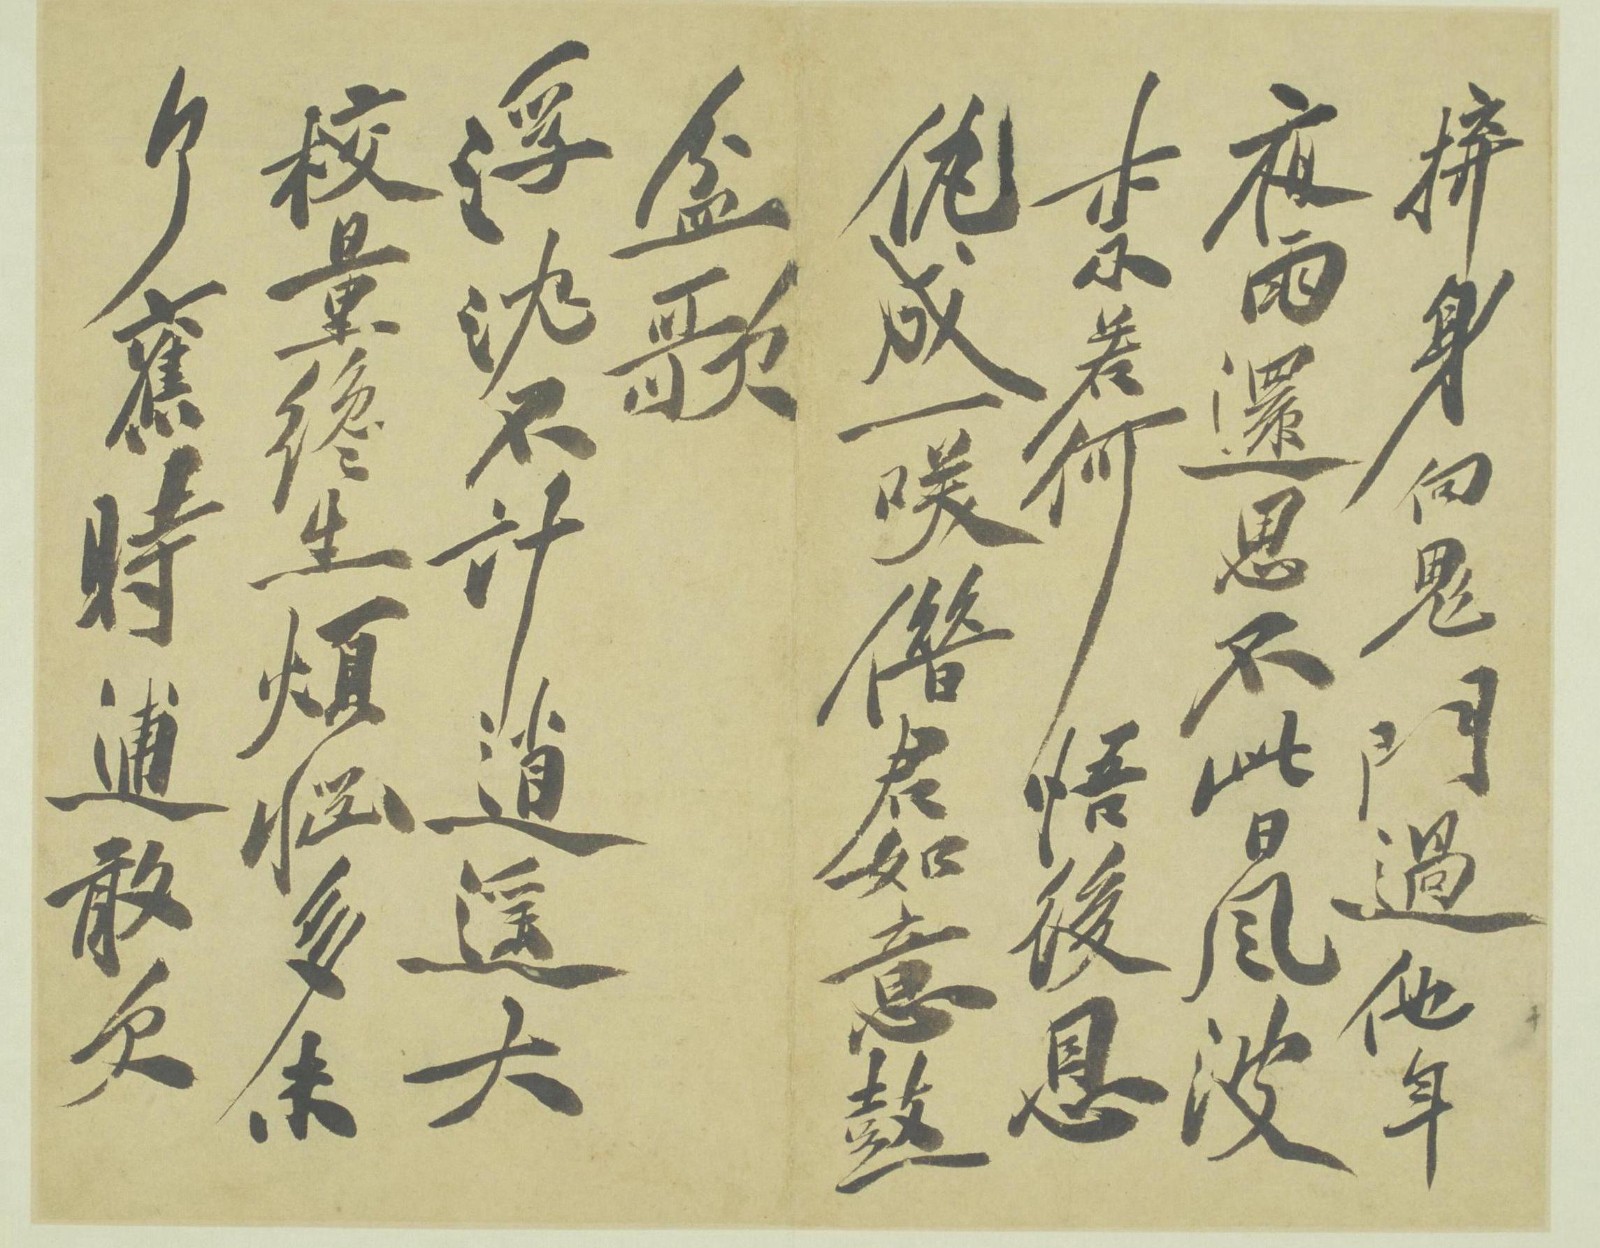 拼身向鬼門過他年
夜雨還思不此日風波
柰若何悟後恩
仇成一咲僭君如意鼓
盆歌
浮沈不計逍遥大
校量纔生煩惱多未
了舊時逋敢欠